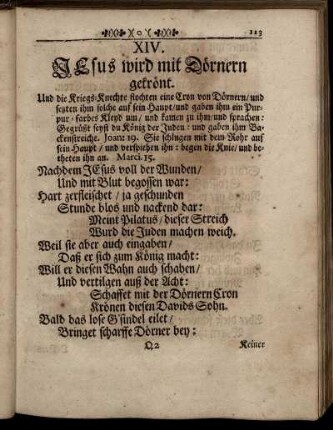 o 123
XIV.
JEsus wird mit Dörnern
gekrönt.
Und die Kriegs-Knechte flochten eine Cron von Dörnern/ und
setzten ihm solche auf sein Haupt/ und gaben ihm ein Pur-
pur-farbes Kleyd um/ und kamen zu ihm/ und sprachen:
Gegrüßt seyst du König der Juden: und gaben ihm Ba-
ckenstreiche. Joann 19. Sie schlugen mit dem Rohr auf
sein Haupt/ und verspiehen ihn: bogen die Knie/ und be-
theten ihn an. Marci. 15.
Nachdem JEsus voll der Wunden/
Und mit Blut begossen war:
Hart zerfleischet/ ja geschunden
Stunde blos und nackend dar:
Meint Pilatus/ dieser Streich
Wurd die Juden machen weich.
Weil sie aber auch eingaben/
Daß er sich zum König macht:
Will er diesen Wahn auch schaben/
Und vertilgen auß der Acht:
Schaffet mit der Dörnern Cron
Krönen diesen Davids Sohn.
Bald das lose G'sindel eilet/
Bringet scharffe Dörner bey:
Q2 Keiner